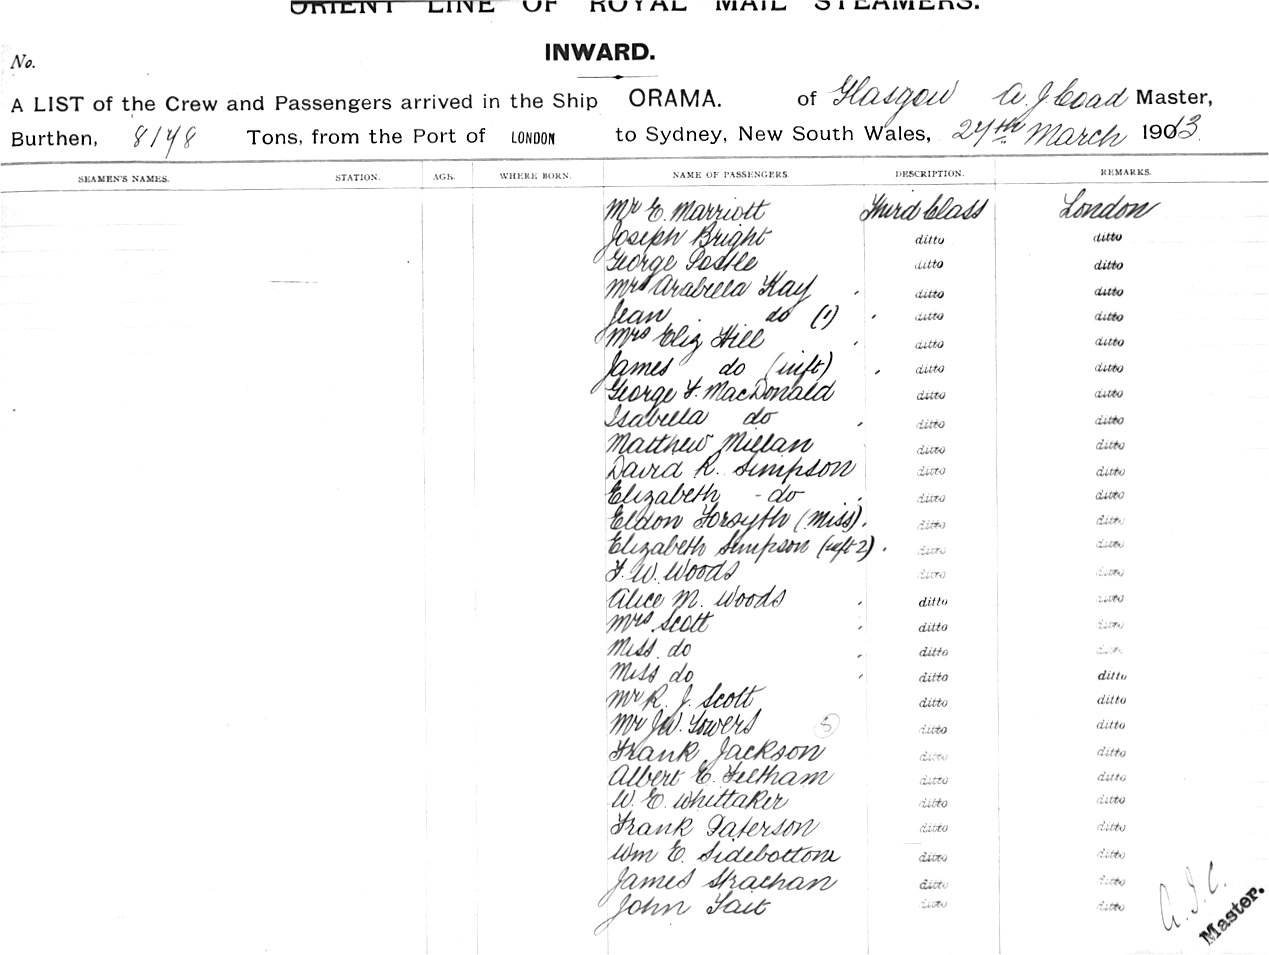 ORIENT LINE OF ROYAL MAIL STEAMERS.
INWARD.
No.
A LIST of the Crew and Passengers arrived in the Ship ORAMA. of Glasgow A J Coad Master,
Burthen, 8198 Tons, from the Port of LONDON to Sydney, New South Wales, 27th March 1903 13
SEAMEN'S NAMES. STATION. AGE. WHERE BORN. NAME OF PASSENGERS DESCRIPTION. REMARKS.
Mr E. Marriott Third Class London
Joseph Bright ditto ditto
George Postle ditto ditto
Mrs Arabella Kay ditto ditto
Jean do (1) ditto ditto
Mrs Eliz Hill ditto ditto
James do (inft) ditto ditto
George F. MacDonald ditto ditto
Isabella do ditto ditto
Matthew Millan ditto ditto
David R. Simpson ditto ditto
Elizabeth - do ditto ditto
Eldon Forsyth (Miss). ditto ditto
Elizabeth Simpson (inft 2) ditto ditto
F. W. Woods ditto ditto
Alice M. Woods ditto ditto
Mrs Scott ditto ditto
Miss do ditto ditto
Miss do ditto ditto
Mr R. J. Scott ditto ditto
Mr J.W. Towers (5) ditto ditto
Frank Jackson ditto ditto
Albert E. Feltham ditto ditto
W. E. Whittaker ditto ditto
Frank Paterson ditto ditto
Wm E. Sidebottom ditto ditto
James Strachan ditto ditto
John Tait ditto ditto
A. J. C.
Master.